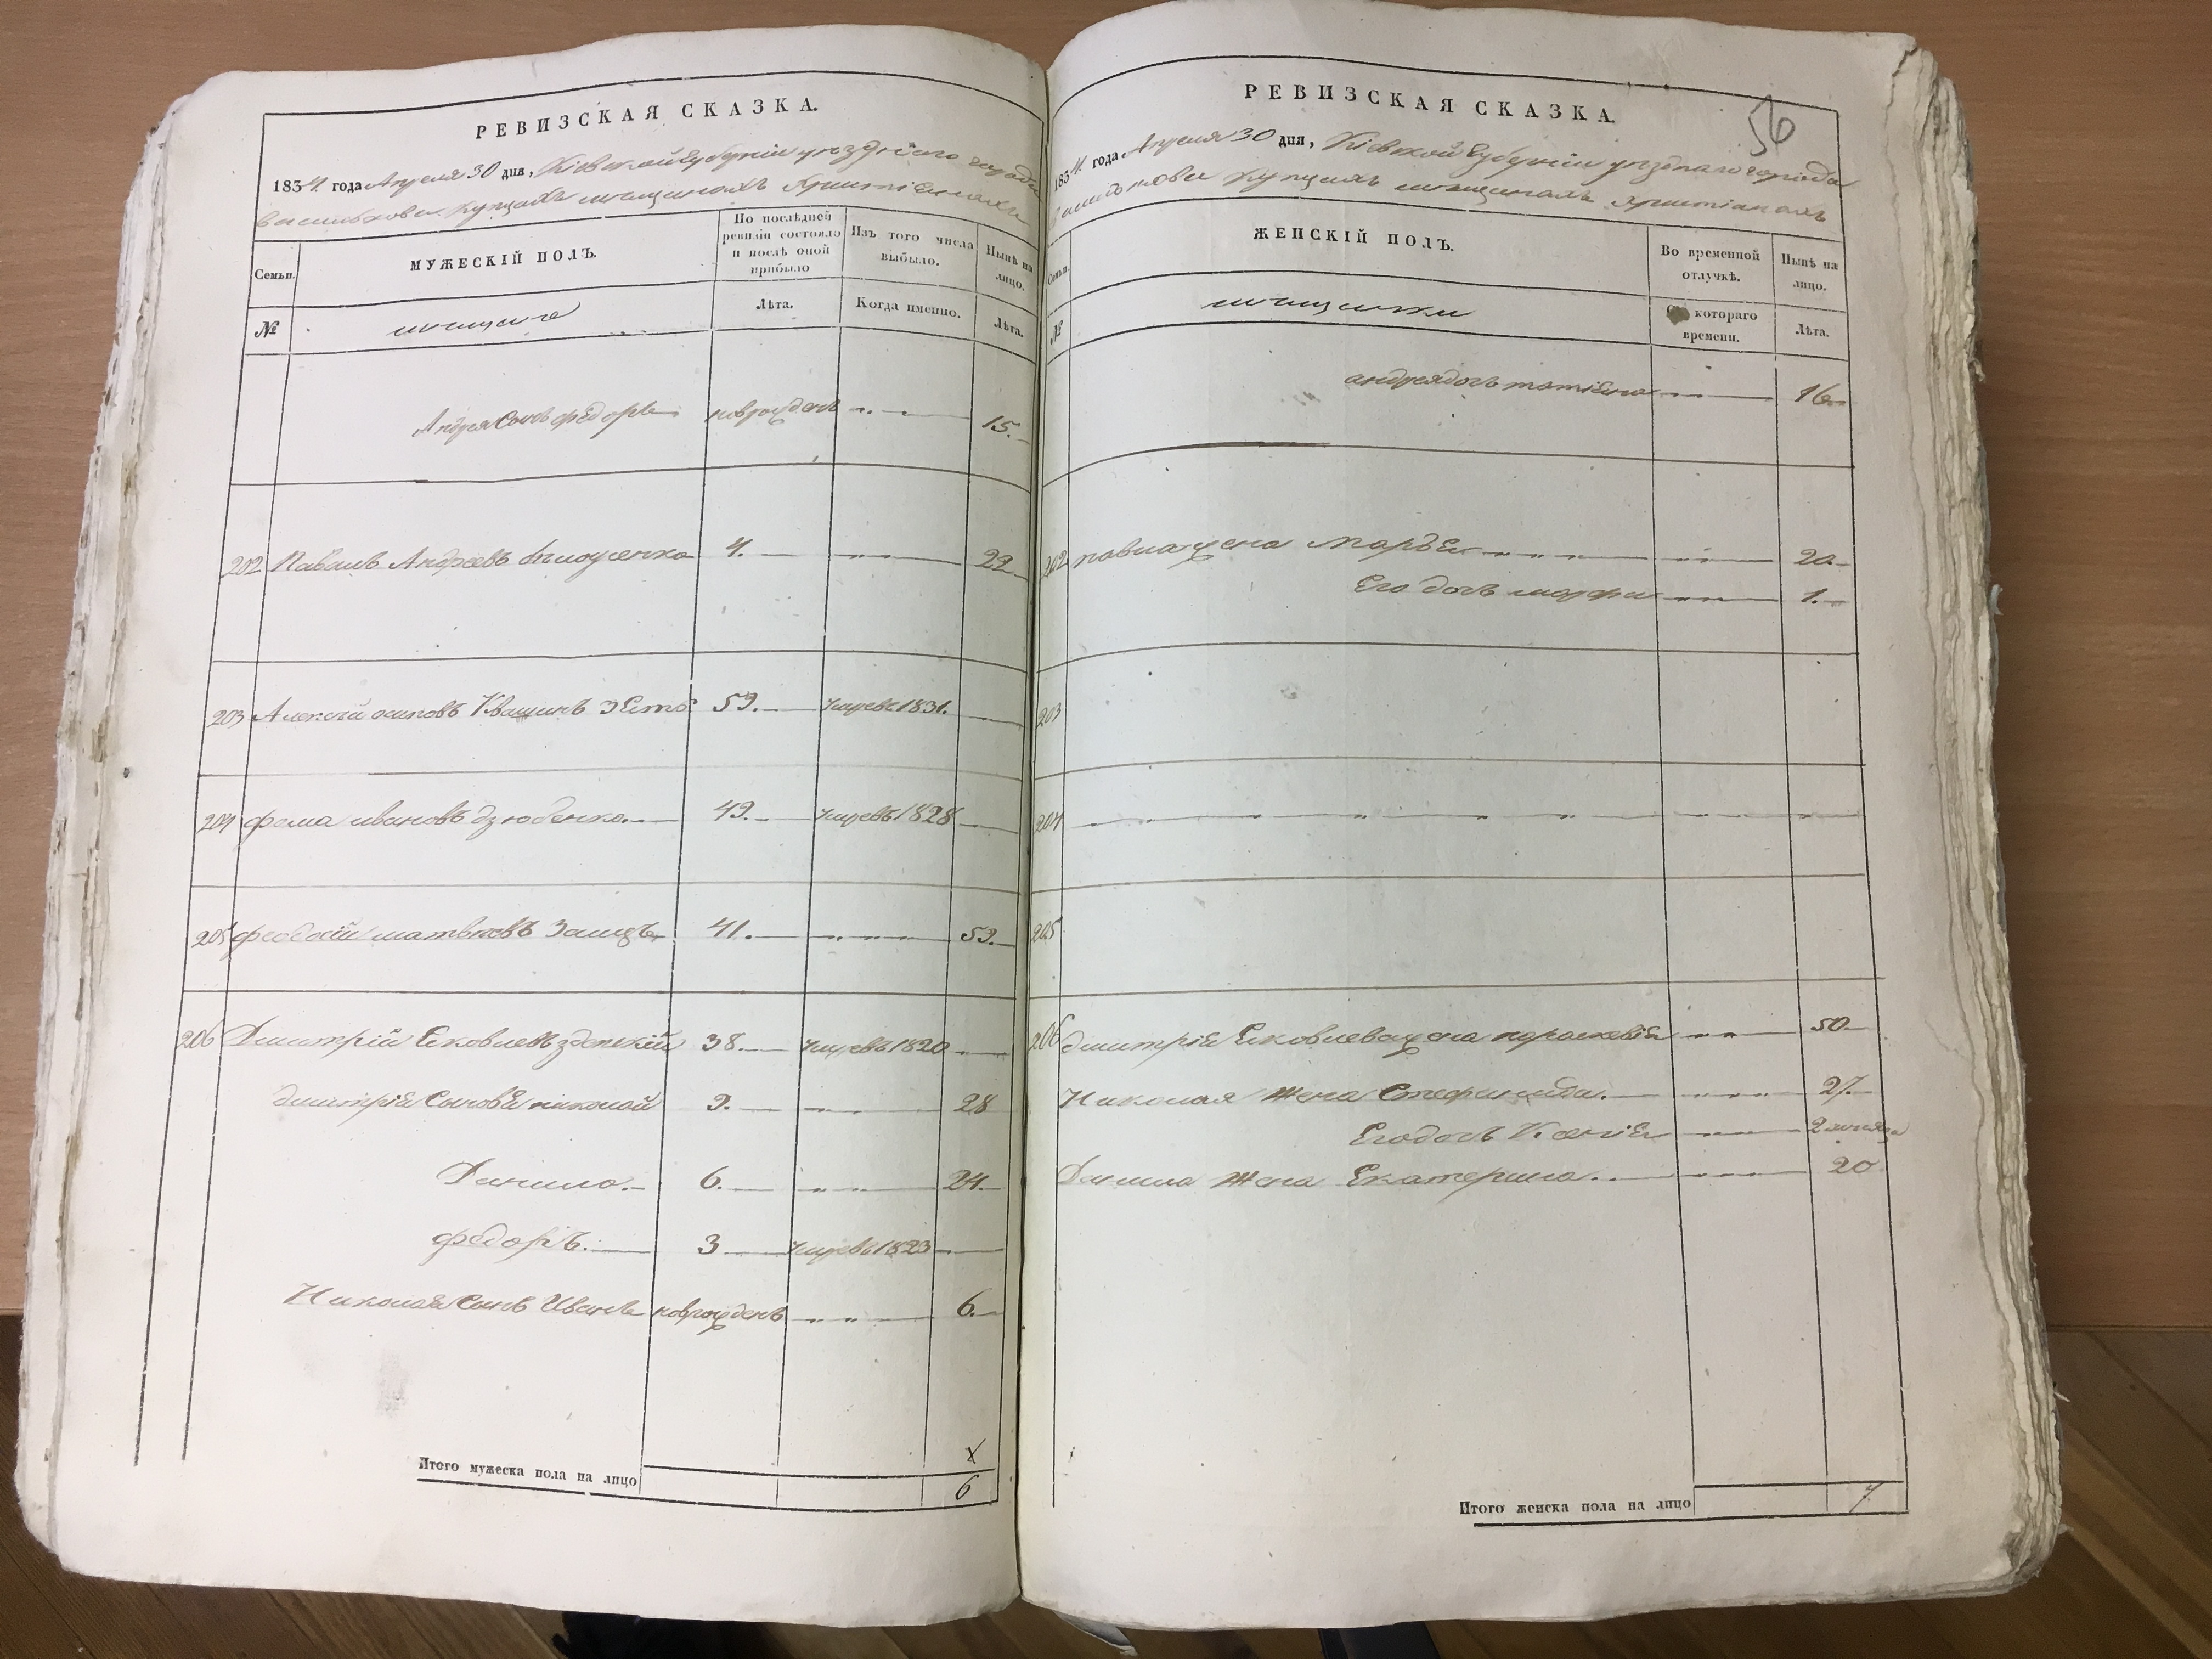 РЕВИЗСКАЯ СКАЗКА.
1834. года Апреля 30 дня, Кіевской Губерніи уезднаго города
Василькова Купцахъ мещинахъ Христіянахъ
Семьи.
МУЖЕСКІЙ ПОЛЪ.
По послѣдней ревизіи состояло и послѣ оной прибыло
Изъ того числа выбыло.
Нынѣ на лицо.
№
мещине
Лѣта.
Когда именно.
Лѣта.
Андрея Сынъ Федоръ новрожденъ 15.
202 Павелъ Андреевъ 4. 22
203 Алексей осиповъ Квашинъ 59. умре въ 1831.
204 фома ивановъ дзюбенко. 49. умре въ 1828
205 феодосій матвеевъ Заицъ 41. 53.
206 Дмитрій Яковлевъ 38. умре въ 1820
дмитрія Сыновя николай 9. 28
Данило. 6. 24.
федоръ. 3 умре въ 1823
Николая Сынъ Иванъ новрожденъ 6.
Итого мужеска пола на лицо 6
РЕВИЗСКАЯ СКАЗКА.
56
1834. года Апреля 30 дня, Кіевской Губерніи уезднаго города
Василькова Купцахъ мещинахъ Христіанахъ
Семьи.
ЖЕНСКІЙ ПОЛЪ.
Во временной отлучкѣ.
Нынѣ на лицо.
№
мещинки
Съ котораго времени.
Лѣта.
андрея дочь татіяна 16.
202 павла жена Маръя 20.
Его дочь марфа 1.
203
204
205
206 дмитрія Яковлева жена параскевія 50
Николая Жена Стефанида. 27.
Его дочь Ксенія 2 месяца
Данила Жена Екатерина. 20.
Итого женска пола на лицо 7